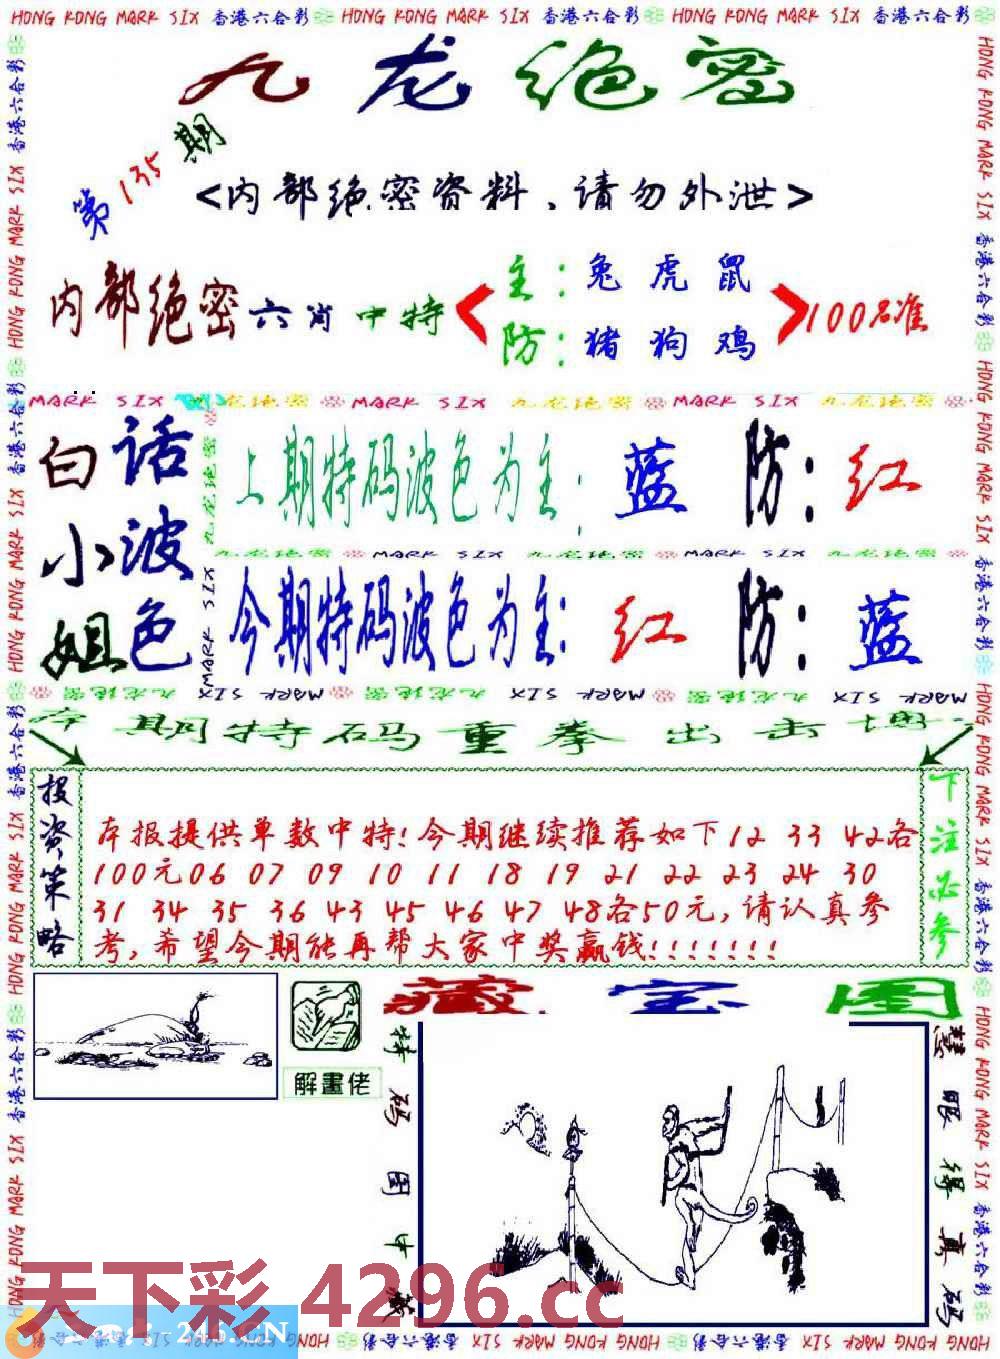 HONG KONG MARK SIX 香港六合彩 HONG KONG MARK SIX 香港六合彩 HONG KONG MARK SIX 香港六合彩
九龙绝密
第135期
<内部绝密资料、请勿外泄>
内部绝密六肖中特
主：兔 虎 鼠
防：猪 狗 鸡
100%准
MARK SIX 九龙绝密 MARK SIX 九龙绝密 MARK SIX 九龙绝密
白小姐
话波色
上期特码波色为主：蓝 防：红
九龙绝密 MARK SIX 九龙绝密 MARK SIX 九龙绝密
今期特码波色为主：红 防：蓝
MARK SIX 九龙绝密 MARK SIX 九龙绝密 MARK SIX 九龙绝密 MARK SIX
本期特码重拳出击
投资策略
本报提供单数中特!今期继续推荐如下12 33 42各
100元06 07 09 10 11 18 19 21 22 23 24 30
31 34 35 36 43 45 46 47 48各50元,请认真参
考,希望今期能再帮大家中奖赢钱!!!!!!!
下注必参
藏宝图
解畫佬
特码图中藏
慧眼得真码
天下彩 4296.cc
246.CN
HONG KONG MARK SIX 香港六合彩